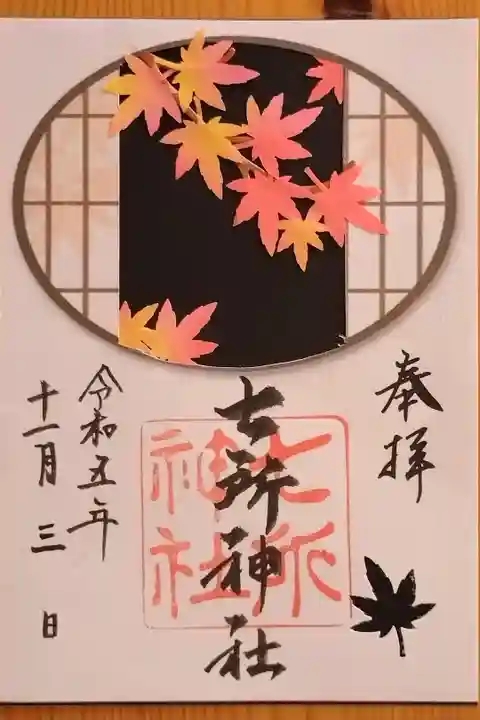 奉拝
七所神社
七所
神社
令和五年
十一月三日